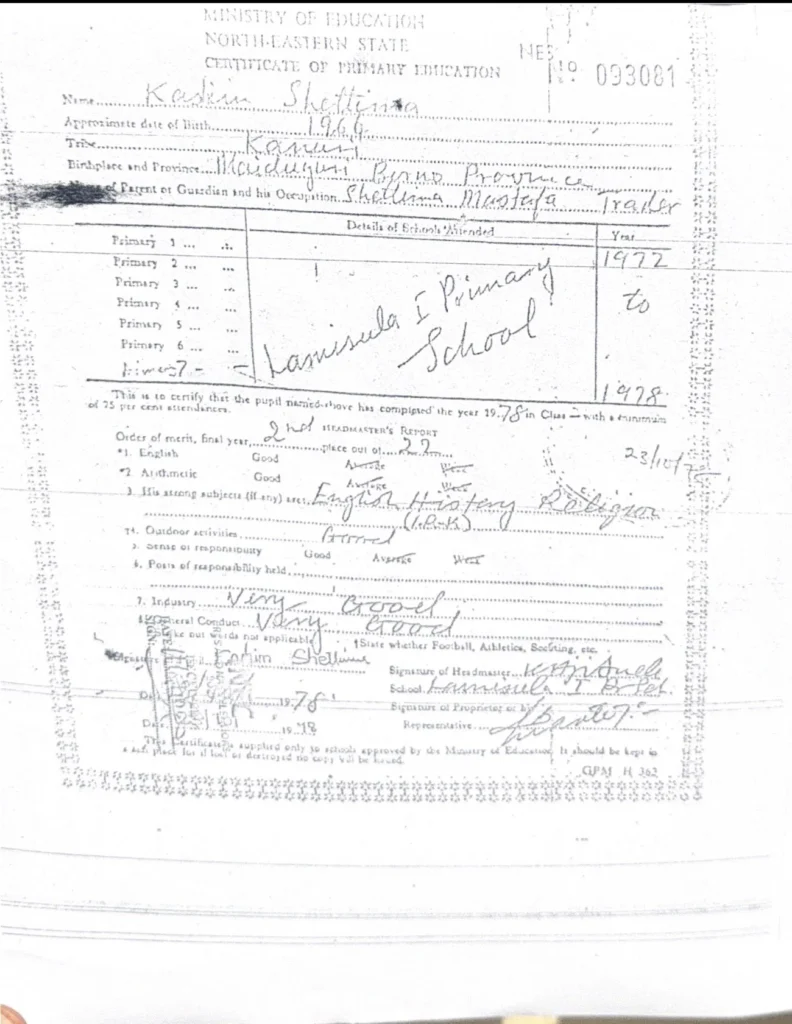 MINISTRY OF EDUCATION
NORTH-EASTERN STATE
CERTIFICATE OF PRIMARY EDUCATION
NES
No 093081
Name Kashim Shettima
Approximate date of Birth 1964
Tribe Kanuri
Birthplace and Province Maiduguri Borno Province
of Parent or Guardian and his Occupation Shettima Mustafa Trader
Details of Schools Attended Year
Primary 1 ... ... 1972
Primary 2 ... ...
Primary 3 ... ...
Primary 4 ... ... to
Primary 5 ... ...
Primary 6 ... ...
Primary 7 - -
Lamisula I Primary
School
1978
This is to certify that the pupil named above has completed the year 1978 in Class — with a minimum
of 75 per cent attendances.
HEADMASTER'S REPORT
Order of merit, final year, 2nd place out of 22
23/10/78
*1. English Good Average Weak
*2 Arithmetic Good Average Weak
3. His strong subjects (if any) are: English History Religion
(I.R.K)
†4. Outdoor activities Good
5. Sense of responsibility Good Average Weak
6. Posts of responsibility held
7. Industry Very Good
8. General Conduct Very Good
out words not applicable †State whether Football, Athletics, Scouting, etc.
Signature Shettima
Signature of Headmaster
School Lamisula I
1978
Signature of Proprietor or his
Representative
1978
This Certificate is supplied only to schools approved by the Ministry of Education. It should be kept in
a safe place for if lost or destroyed no copy will be issued.
GPM H 362